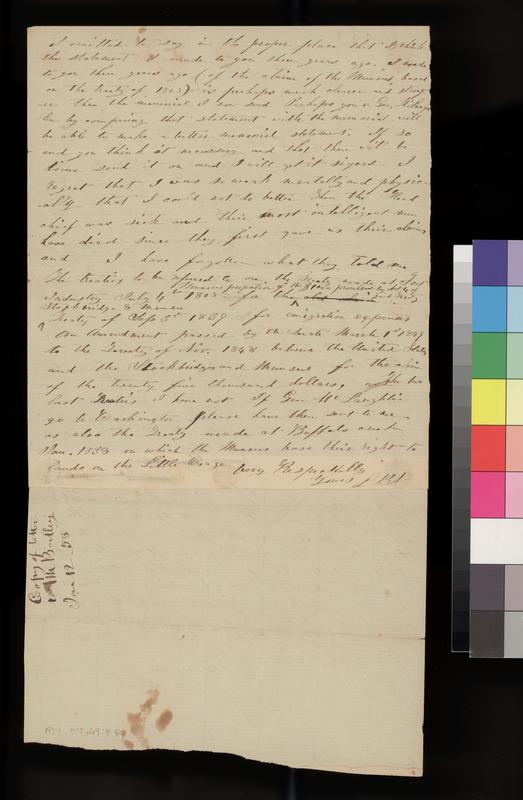 I omitted to say in the proper place that I think
the statement I made to you three years ago. I made
to you three years ago (of the claim of the Munsees, based
on the treaty of 1805) is perhaps much clearer and strong
er than the memorial I now send Perhaps you or Gen
lin by comparing that statement with the memorial will
be able to make a better memorial statement. If so
and you think it necessary and that there will be
time send it on and I will get it signed. I
regret that I was so weak mentally and physic-
ally that I could not do better Then the Head
chief was sick and their most intelligent men
have died since they first gave us their claims
and I have forgotten what they told me
The treaties to be referred to are the Treaty made at Fort
Munsees proportion of the $ promised by the
Industry July 4 1805 for the said Treaty
Stockbridge & Munsee
Treaty of Sept 3d 1839 for emigration expenses
An Amendment passed by the Senate March 1st 1849
to the Treaty of Nov. 1848 between the United States
and the Stockbridges and Munsees for the
of the twenty five thousand dollars. The two
last Treaties I have not If Gen. Mc Laughlin
go to Washington please have them sent to me
as also the Treaty made at Buffalo creek
Jan. 1838 on which the Munsees base their right to
lands on the Little Osage
Very Respectfully
Yours J
Copy of letter
Jan 12 53